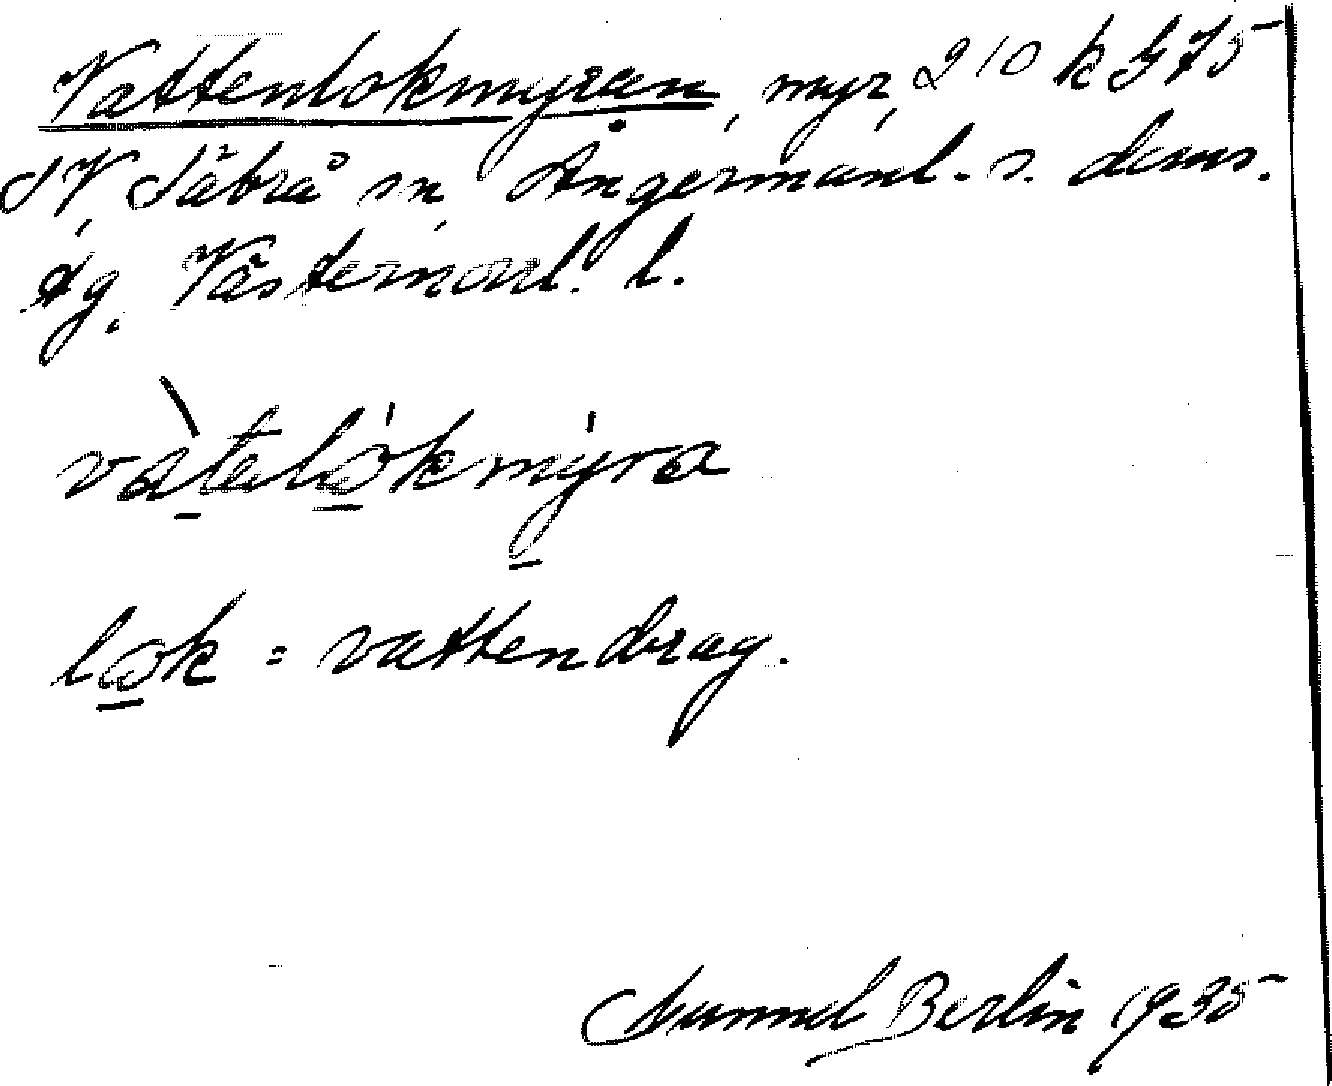 Vattenlokmyran, myr, 210 k G 75
SV, Säbrå sn, Ångermanl. s. doms.
dg. Västernorrl. l.
vàtelókmýra
lok = vattendrag.
Gunnel Berlin 1935